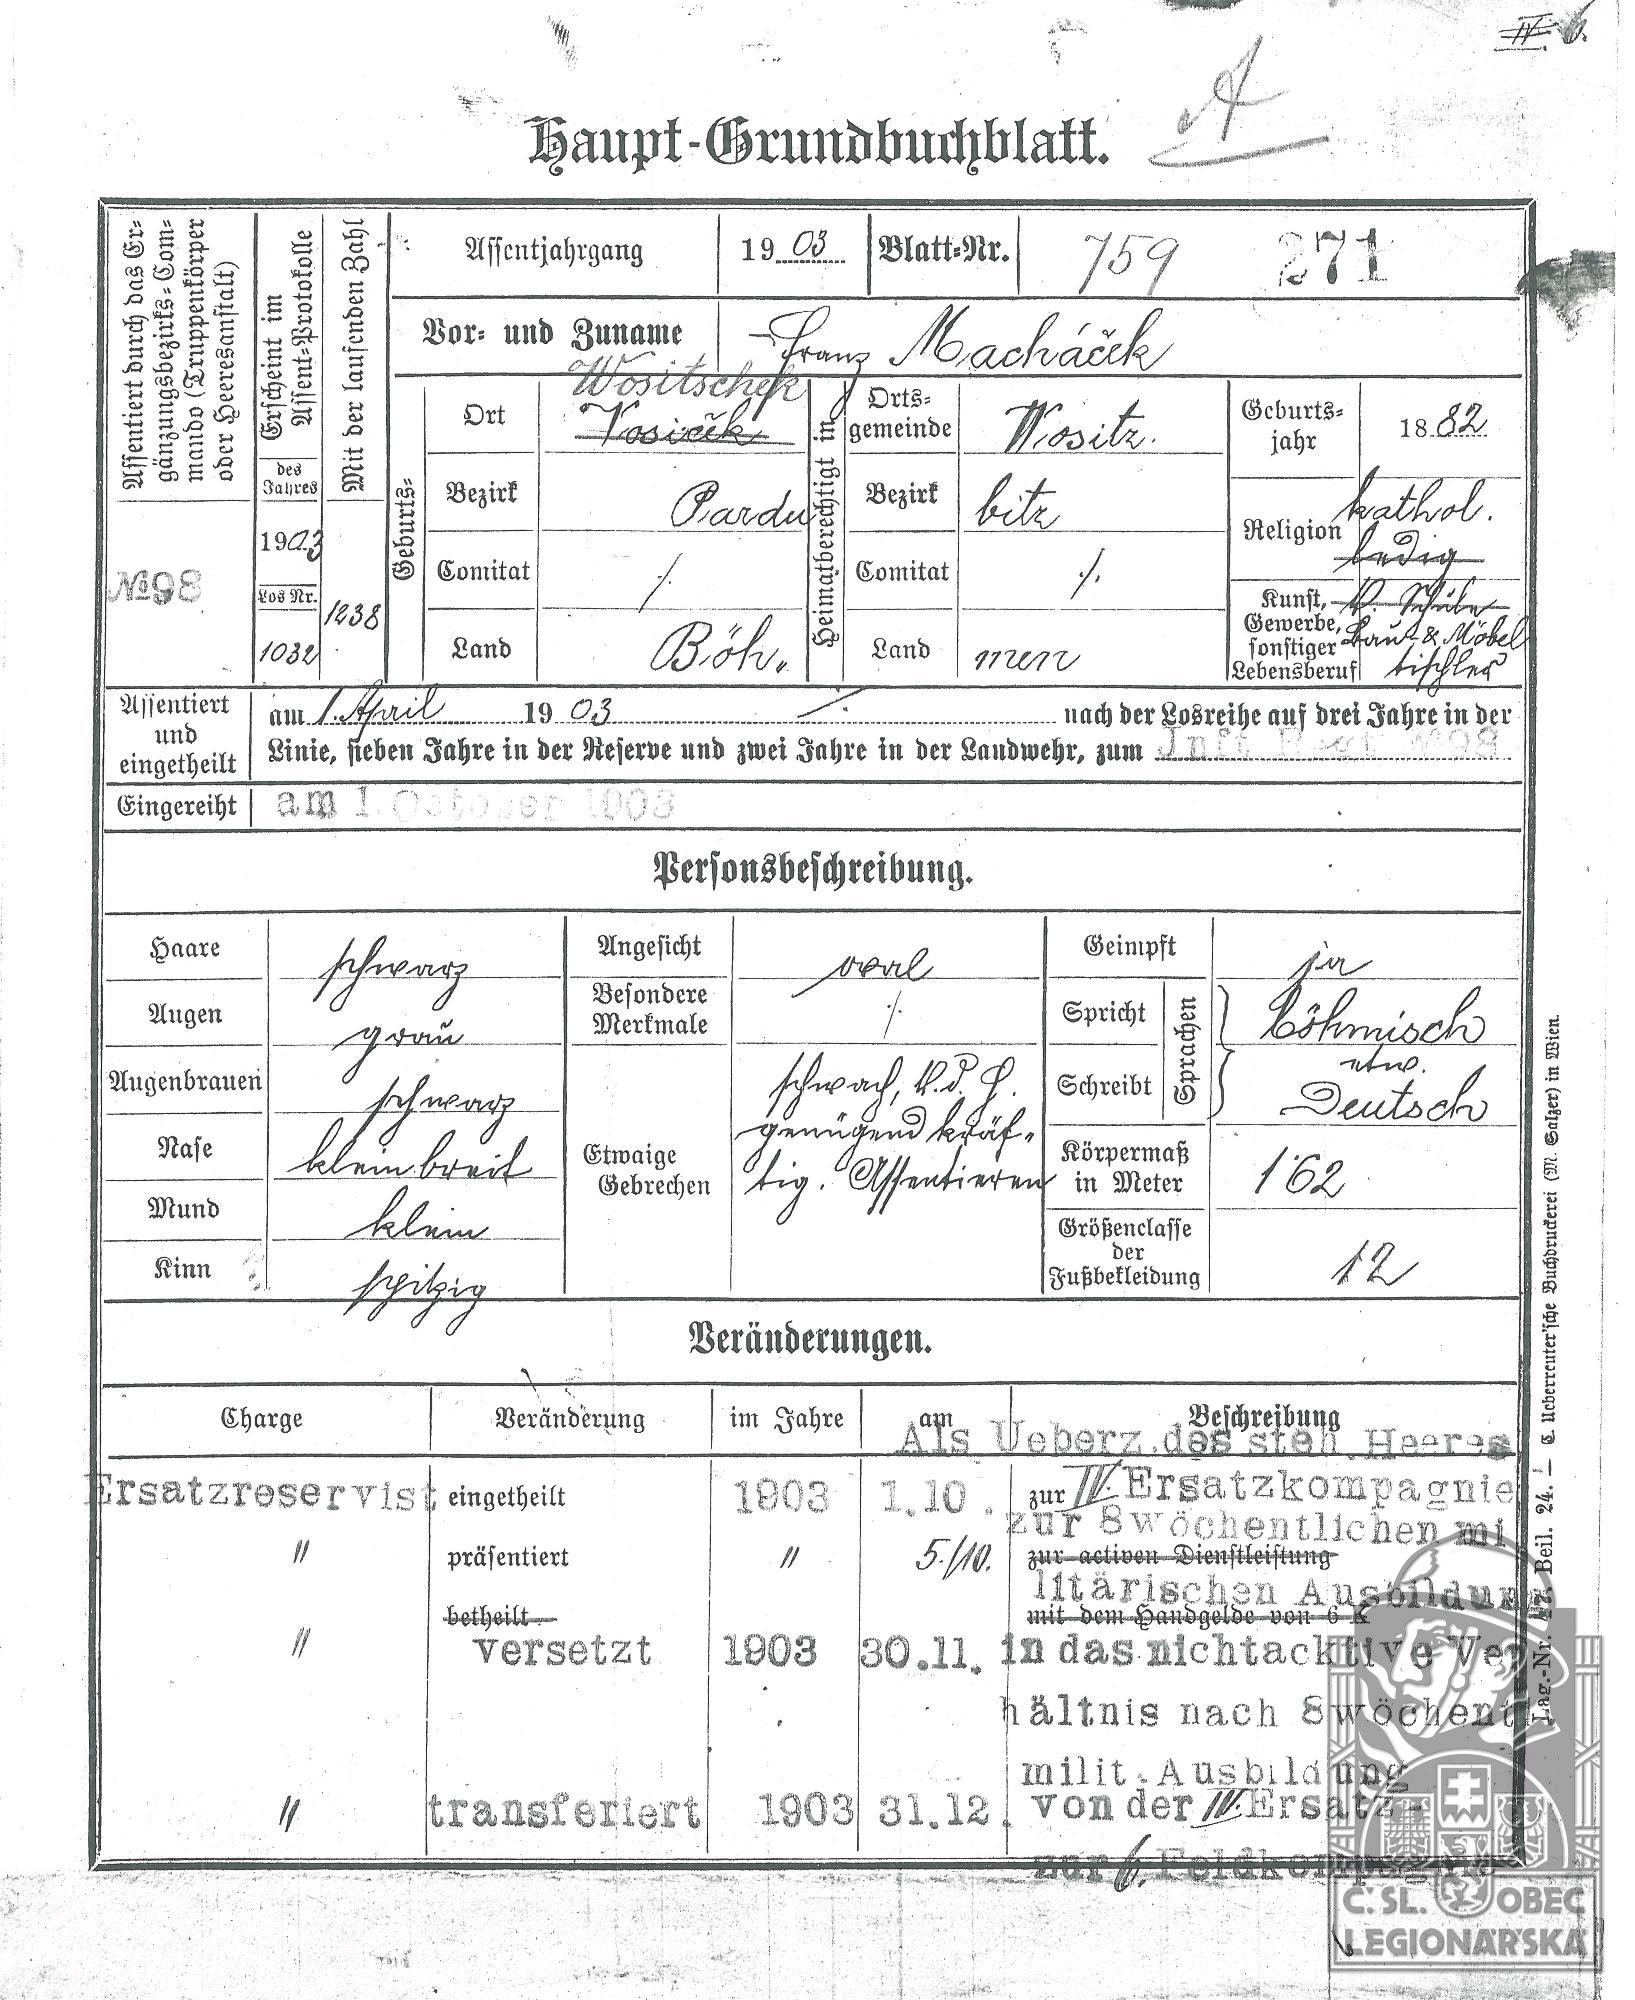 IV. 6.
A
Haupt-Grundbuchblatt.
Assentiert durch das Er-
gänzungsbezirks-Com-
mando (Truppenkörper
oder Heeresanstalt)
№98
Erscheint im
Assent-Protokolle
des
Jahres
1903
Los Nr.
1032
Mit der laufenden Zahl
1238
Assentjahrgang 1903 Blatt-Nr. 759 271
Vor- und Zuname Franz Macháček
Geburts-
Ort Wositschek
Vosiček
Bezirk Pardu
Comitat ·/.
Land Böh„
Heimatberechtigt in
Orts-
gemeinde Wositz.
Bezirk bitz
Comitat ·/.
Land men
Geburts-
jahr 1882
Religion kathol.
ledig
Kunst,
Gewerbe,
sonstiger
Lebensberuf
Bau- & Möbel
tischler
Assentiert
und
eingetheilt
am 1. April 1903 ·/. nach der Losreihe auf drei Jahre in der
Linie, sieben Jahre in der Reserve und zwei Jahre in der Landwehr, zum Inft Regt №98
Eingereiht am 1. October 1903
Personsbeschreibung.
Haare schwarz
Augen grau
Augenbrauen schwarz
Nase klein breit
Mund klein
Kinn spitzig
Angesicht oval
Besondere
Merkmale ·/.
Etwaige
Gebrechen
schwach,
genügend kräf-
tig. Assentieren
Geimpft ja
Spricht
Schreibt
Sprachen
Böhmisch
etw.
Deutsch
Körpermaß
in Meter 1·62
Größenclasse
der
Fußbekleidung 12
Veränderungen.
Charge Veränderung im Jahre am Beschreibung
Als Ueberz. des steh. Heeres
Ersatzreservist eingetheilt 1903 1.10. zur IV. Ersatzkompagnie
zur 8wöchentlichen mi
" präsentiert " 5./10. zur activen Dienstleistung
litärischen Ausbildung
betheilt mit dem Handgelde von 6 K
" versetzt 1903 30.11. in das nichtacktive Ver
hältnis nach 8wöchentl.
milit. Ausbildung
" transferiert 1903 31.12. von der IV. Ersatz-
zur 6. Feldkompagnie
Lag.-Nr. 47. Beil. 24. — C. Ueberreuter'sche Buchdruckerei (M. Salzer) in Wien.
Č. SL. OBEC
LEGIONÁŘSKÁ